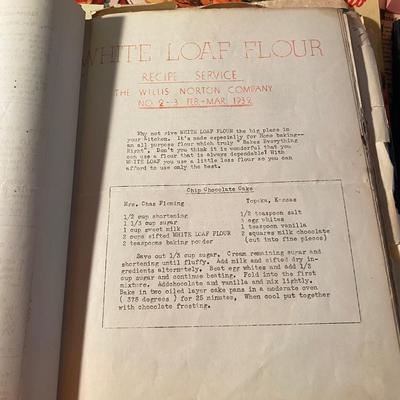 WHITE LOAF FLOUR
RECIPE SERVICE
THE WILLIS NORTON COMPANY
NO. 2-3 FEB-MAR. 1932
Why not give WHITE LOAF FLOUR the big place in
your kitchen. It's made especially for Home baking--
an all purpose flour which truly "Bakes Everything
Right". Don't you think it is wonderful that you
can use a flour that is always dependable! With
WHITE LOAF you use a little less flour so you can
afford to use only the best.
Chip Chocolate Cake
Mrs. Chas Fleming Topeka, Kansas
1/2 cup shortening 1/2 teaspoon salt
1 1/3 cup sugar 3 egg whites
1 cup sweet milk 1 teaspoon vanilla
2 cups sifted WHITE LOAF FLOUR 2 squares milk chocolate
2 teaspoons baking powder (cut into fine pieces)
Save out 1/3 cup sugar. Cream remaining sugar and
shortening until fluffy. Add milk and sifted dry in-
gredients alternately. Beat egg whites and add 1/3
cup sugar and continue beating. Fold into the first
mixture. Addchocolate and vanilla and mix lightly.
Bake in two oiled layer cake pans in a moderate oven
( 375 degrees ) for 25 minutes, When cool put together
with chocolate frosting.